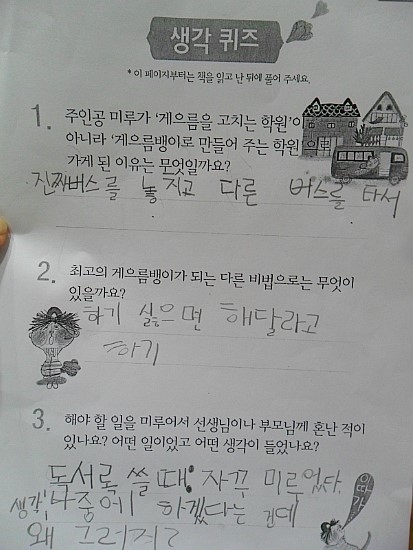 생각 퀴즈
* 이 페이지부터는 책을 읽고 난 뒤에 풀어 주세요.
1. 주인공 미루가 '게으름을 고치는 학원'이
아니라 '게으름뱅이로 만들어 주는 학원'으로
가게 된 이유는 무엇일까요?
진짜버스를 놓지고 다른 버스를 타서
2. 최고의 게으름뱅이가 되는 다른 비법으로는 무엇이
있을까요?
하기 싫으면 해달라고
하기
3. 해야 할 일을 미루어서 선생님이나 부모님께 혼난 적이
있나요? 어떤 일이었고 어떤 생각이 들었나요?
독서록 쓸 때 자꾸 미루었다.
생각: 나중에 하겠다는 건데
왜 그러지?